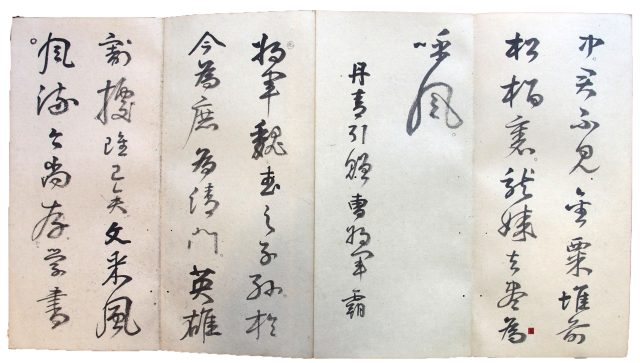 中君不見金粟堆前
松柏裏龍媒去盡鳥
呼風
丹青引贈曹將軍霸
將軍魏武之子孫於
今為庶為清門英雄
割據雖已矣文采風
風流今尚存學書